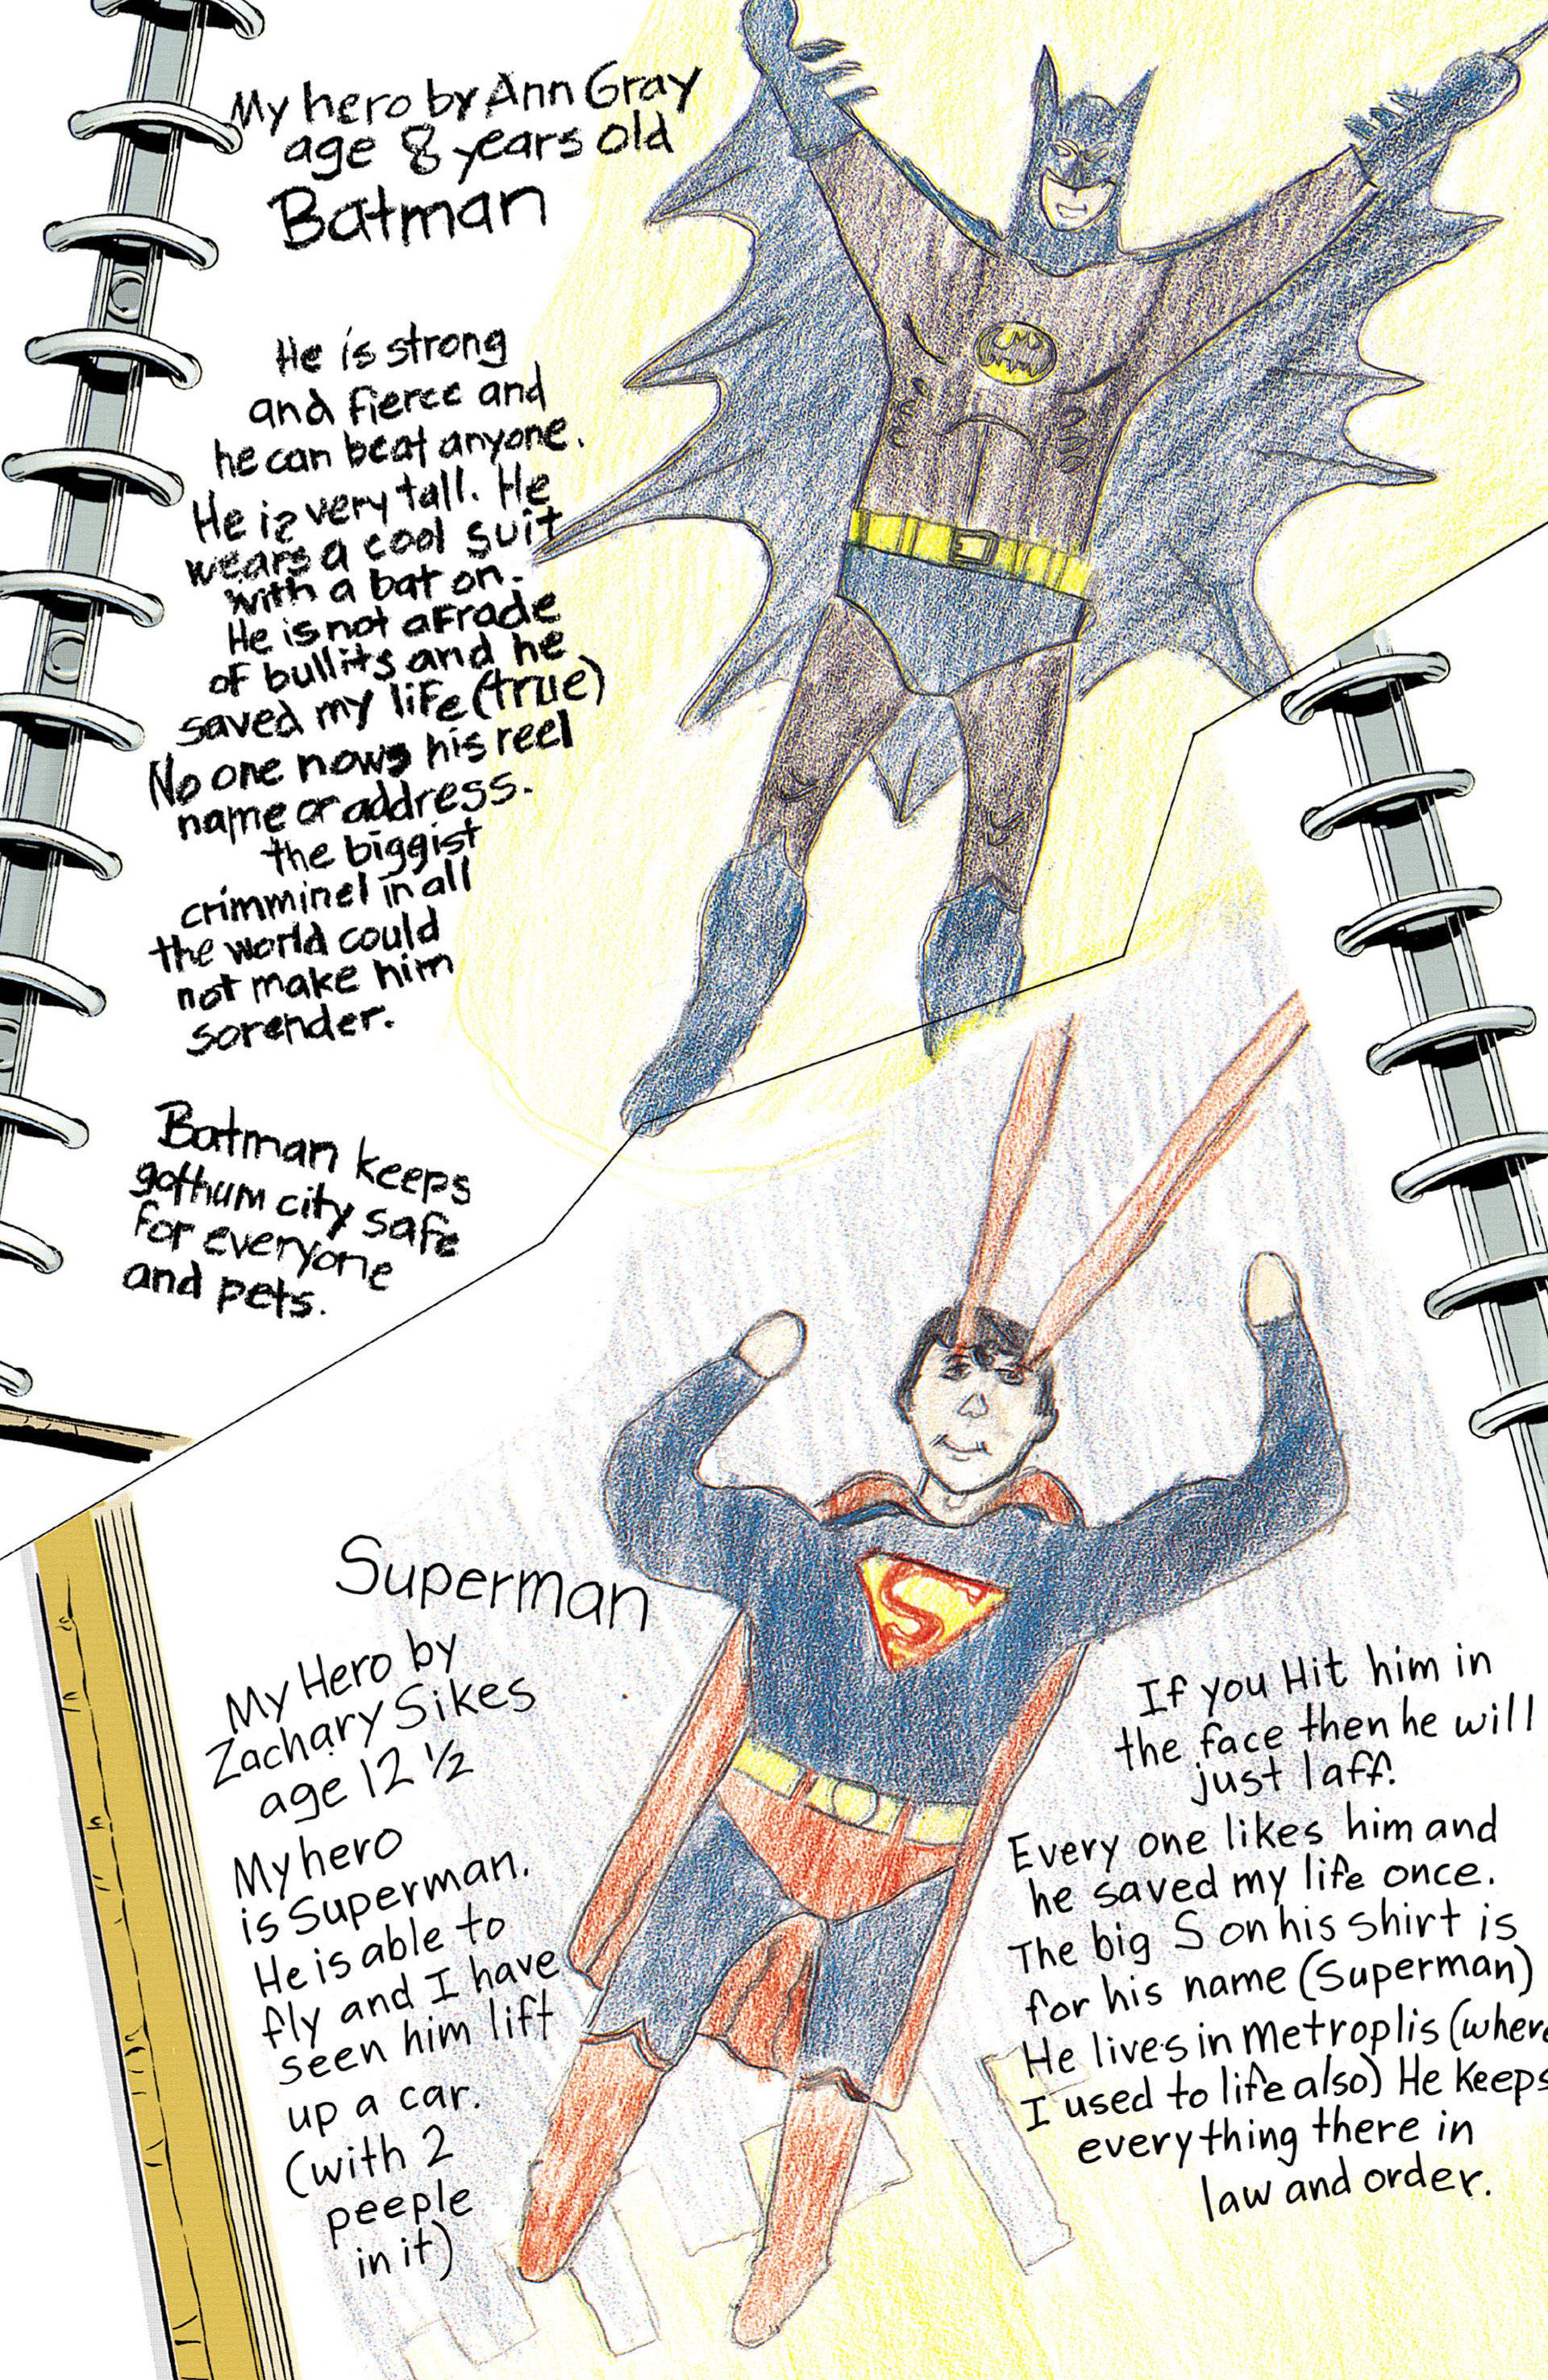 My hero by Ann Gray
age 8 years old
Batman
He is strong
and fierce and
he can beat anyone.
He is very tall. He
wears a cool suit
with a bat on.
He is not afrade
of bullits and he
saved my life (true)
No one nows his reel
name or address.
the biggist
crimminel in all
the world could
not make him
sorender.
Batman keeps
gothum city safe
for everyone
and pets.
Superman
My Hero by
Zachary Sikes
age 12 ½
My hero
is Superman.
He is able to
fly and I have
seen him lift
up a car.
(with 2
peeple
in it)
S
If you Hit him in
the face then he will
just laff.
Every one likes him and
he saved my life once.
The big S on his shirt is
for his name (Superman)
He lives in metroplis (where
I used to life also) He keeps
everything there in
law and order.